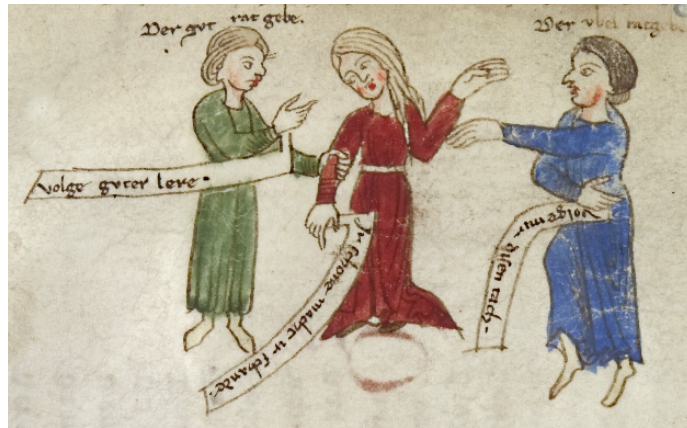 Der gvt rat gebe.
Der vbel ratgebe
volge gvter lere.
Ir schone machet ir schande.
volge mir disen tach.